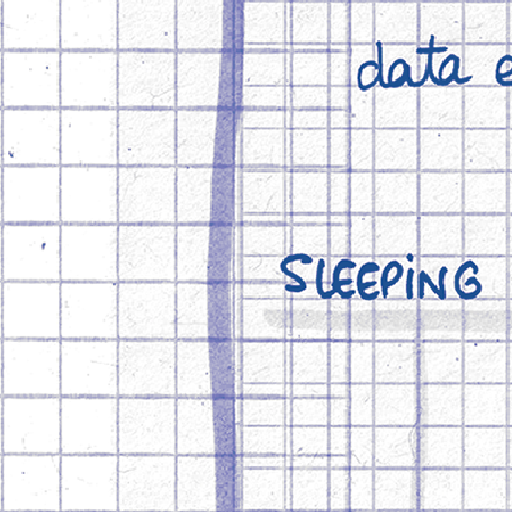 data e
SLEEPING